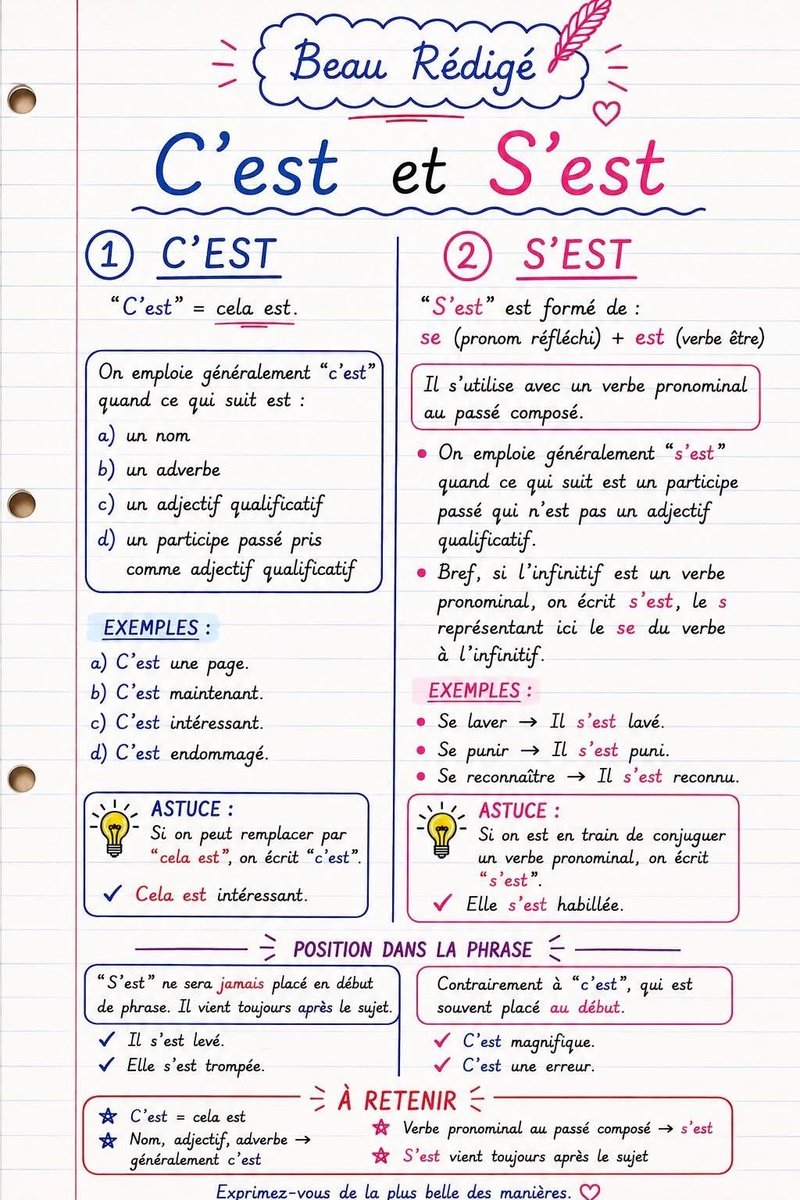 Beau Rédigé
C'est et S'est
1 C'EST
"C'est" = cela est.
On emploie généralement "c'est"
quand ce qui suit est :
a) un nom
b) un adverbe
c) un adjectif qualificatif
d) un participe passé pris
comme adjectif qualificatif
EXEMPLES :
a) C'est une page.
b) C'est maintenant.
c) C'est intéressant.
d) C'est endommagé.
ASTUCE :
Si on peut remplacer par
"cela est", on écrit "c'est".
✓ Cela est intéressant.
2 S'EST
"S'est" est formé de :
se (pronom réfléchi) + est (verbe être)
Il s'utilise avec un verbe pronominal
au passé composé.
• On emploie généralement "s'est"
quand ce qui suit est un participe
passé qui n'est pas un adjectif
qualificatif.
• Bref, si l'infinitif est un verbe
pronominal, on écrit s'est, le s
représentant ici le se du verbe
à l'infinitif.
EXEMPLES :
• Se laver → Il s'est lavé.
• Se punir → Il s'est puni.
• Se reconnaître → Il s'est reconnu.
ASTUCE :
Si on est en train de conjuguer
un verbe pronominal, on écrit
"s'est".
✓ Elle s'est habillée.
POSITION DANS LA PHRASE
"S'est" ne sera jamais placé en début
de phrase. Il vient toujours après le sujet.
✓ Il s'est levé.
✓ Elle s'est trompée.
Contrairement à "c'est", qui est
souvent placé au début.
✓ C'est magnifique.
✓ C'est une erreur.
À RETENIR
C'est = cela est
Nom, adjectif, adverbe →
généralement c'est
Verbe pronominal au passé composé → s'est
S'est vient toujours après le sujet
Exprimez-vous de la plus belle des manières.